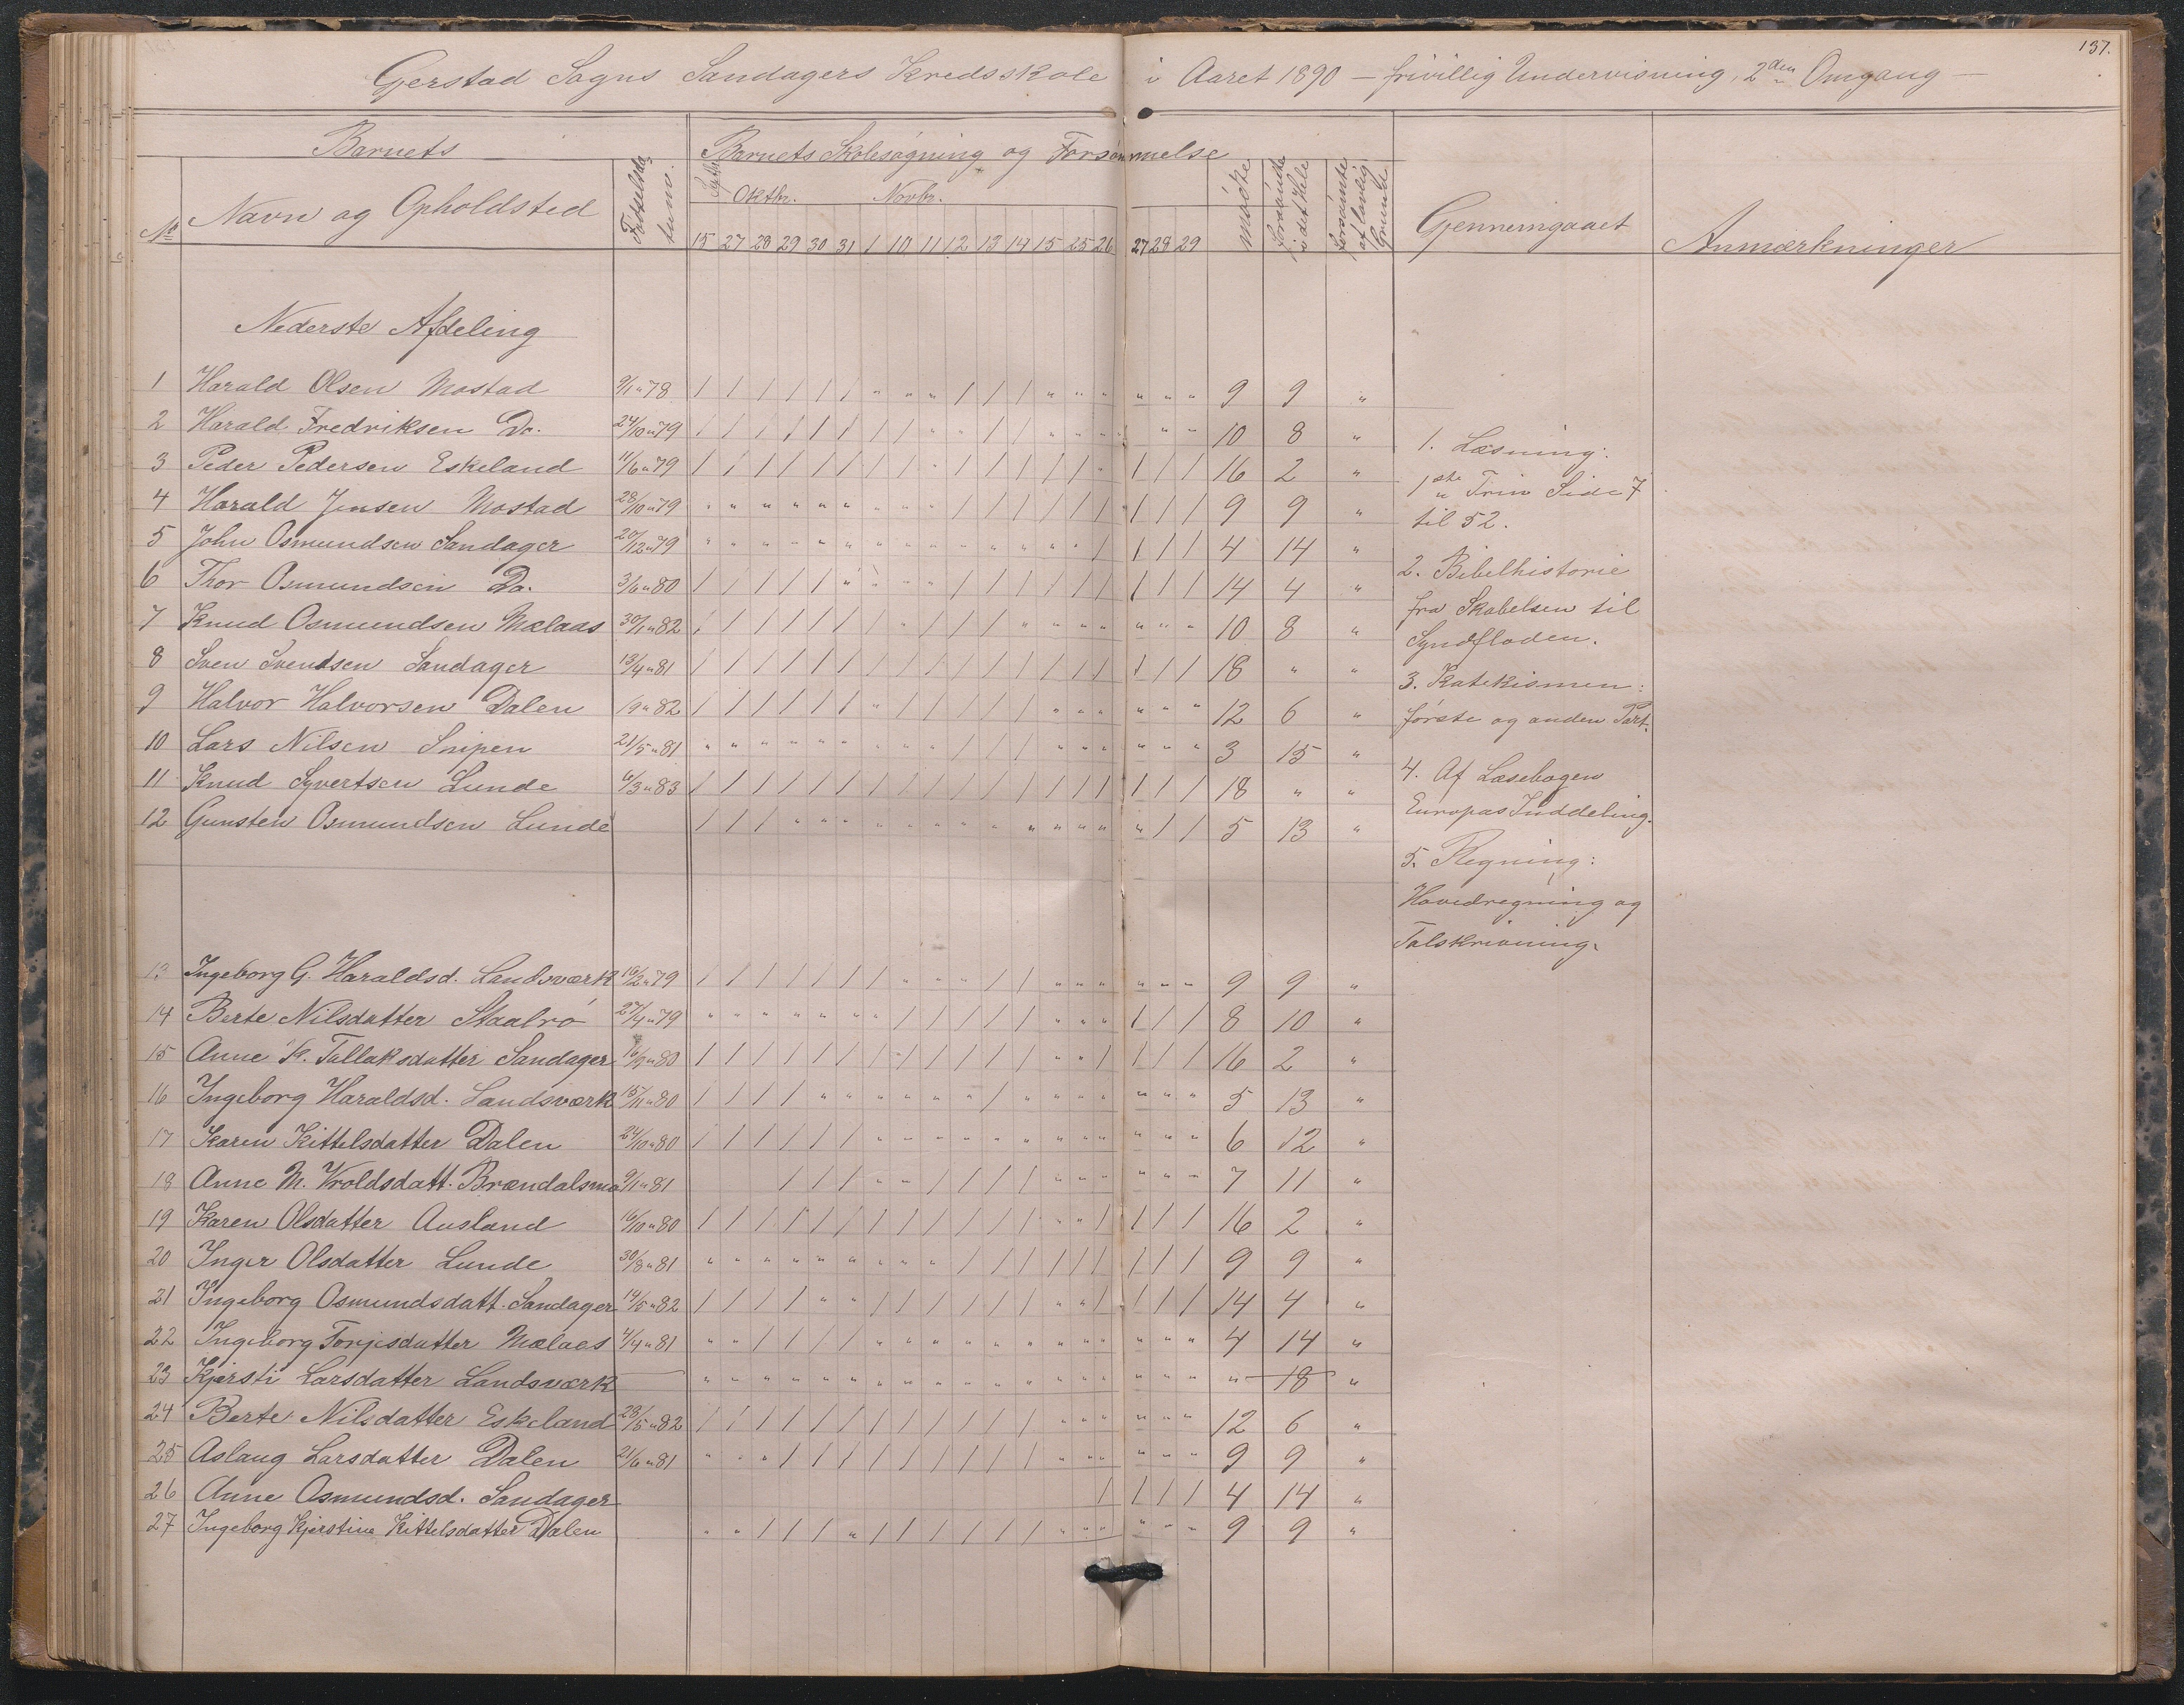 137.
Gjerstad Sogns Sandagers Kredsskole i Aaret 1890 — frivillig Undervisning, 2den Omgang —
Barnets
Barnets Skolesøgning og Forsømmelse
No
Navn og Opholdsted
Fødselsdatum.
Septbr. Oktbr. Novbr.
15 27 28 29 30 31 1 10 11 12 13 14 15 25 26 27 28 29
mødte
forsømte i det Hele
forsømte af lovlig Grunde
Gjennemgaaet
Anmærkninger
Nederste Afdeling
1 Harald Olsen Mostad 9/1 " 78 / / / / / / " " " / / / " " " " " " 9 9 "
2 Harald Fredriksen Do. 24/10 " 79 / / / / / / / / " " / / " " " " " " 10 8 "
3 Peder Pedersen Eskeland 11/6 " 79 / / / / / / / / " / / / / / " / / / 16 2 "
4 Harald Jensen Mostad 28/10 " 79 " " " " " " " " " / / / / / / / / / 9 9 "
5 John Osmundsen Sandager 20/12 " 79 " " " " " " " " " " " " " " / / / / 4 14 "
6 Thor Osmundsen Do. 3/6 " 80 / / / / / " " " " / / / / / / / / / 14 4 "
7 Knud Osmundsen Mælaas 30/1 " 82 / / / / / / / " / / / " " " " " " " 10 8 "
8 Sven Svendsen Sandager 13/4 " 81 / / / / / / / / / / / / / / / / / / 18 " "
9 Halvor Halvorsen Dalen 19 " 82 / / / / / / " / / / / / " " " " " " 12 6 "
10 Lars Nilsen Snipen 21/5 " 81 " " " " " " " " " / / / " " " " " " 3 15 "
11 Knud Syvertsen Lunde 6/3 " 83 / / / / / / / / / / / / / / / / / / 18 " "
12 Gunsten Osmundsen Lunde / / / " " " " " " " " " " " " " / / 5 13 "
13 Ingeborg G. Haraldsd. Landsværk 16/2 " 79 / / / / / / / " " " / / " " " " " " 9 9 "
14 Berte Nilsdatter Staalrø 27/4 " 79 " " " " " " " / / / / / " " " / / / 8 10 "
15 Anne K. Tallaksdatter Sandager 16/9 " 80 / / / / / / / / / / / / " " / / / / 16 2 "
16 Ingeborg Haraldsd. Landsværk 15/11 " 80 / / / / " " " " " " / " " " " " " " 5 13 "
17 Karen Kittelsdatter Dalen 24/10 " 80 / / / / / / " " " " " " " " " " " " 6 12 "
18 Anne M. Vroldsdatt. Brændalsmo 9/1 " 81 / / / " " / / / / " " " " " " 7 11 "
19 Karen Olsdatter Ausland 16/10 " 80 / / / / / / / / / / / / " " / / / / 16 2 "
20 Inger Olsdatter Lunde 30/8 " 81 " " " " " " " " " / / / / / / / / / 9 9 "
21 Ingeborg Osmundsdatt. Sandager 14/5 " 82 / / / / " " / / / / / / " " / / / / 14 4 "
22 Ingeborg Torjesdatter Mælaas 4/4 " 81 " " / / / / " " " " " " " " " " " " 4 14 "
23 Kjersti Larsdatter Landsværk — " " " " " " " " " " " " " " " " " " " 18 "
24 Berte Nilsdatter Eskeland 28/5 " 82 / / / / / / / / / / / / " " " " " " 12 6 "
25 Aslaug Larsdatter Dalen 21/6 " 81 " " " / / / / / / / / / " " " " " " 9 9 "
26 Anne Osmundsd. Sandager / / / / 4 14 "
27 Ingeborg Kjerstine Kittelsdatter Dalen " " / / / " / / / / / / " " " " " " 9 9 "
1. Læsning:
1ste Trin Side 7
til 52.
2. Bibelhistorie
fra Skabelsen til
Syndfloden.
3. Katekismen:
første og anden Part.
4. Af Læsebogen
Europas Inddeling.
5. Regning:
Hovedregning og
Talskrivning.